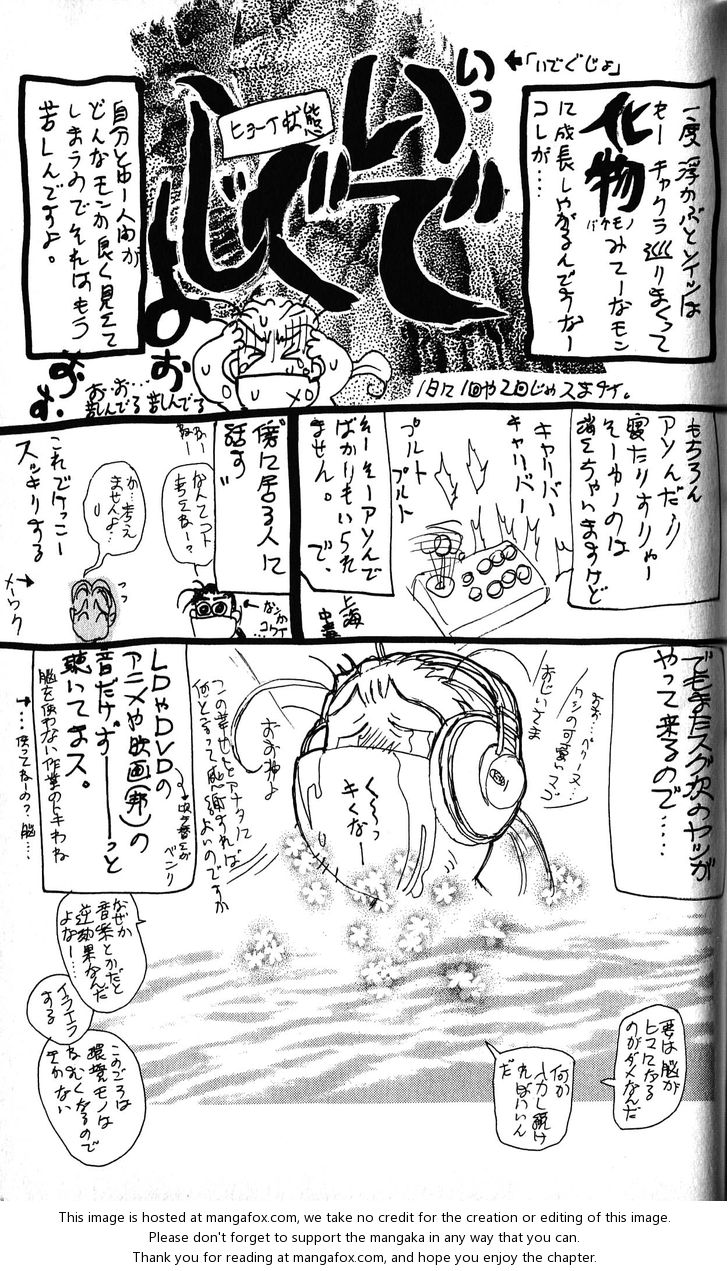 一度浮かぶとソイツは
もー チャクラ巡りまくって
化物みてーなモン
バケモノ
に成長しやがるんですなー
コレが・・・・
←「いでぐじょ」
いっ
いで
ぐじ
ょ
ヒョーイ状態
自分とゆー人間が
どんなモンか良く見えて
しまうのでそれはもう
苦しんですよ。
お
お・・お・・・
苦しんでる 苦しんでる
1日に1回や2回じゃスまナイ。
もちろん
アソんだり
寝たりすりゃー
そーゆーのは
消えちゃいますけど
キャリバー
キャリバー
プルト
プルト
そーそーアソんで
ばかりもいられ
ません。で、
上海
中毒
傍に居る人に
話す
なんてコト
考えねー?
ねー
←なんか
コワイ
か・・考え
ませんよ…
これでけっこー
スッキリする
メーワク→
でもまたスグ次のヤツが
やって来るので・・・・
おお・・ベリーヌ・・
ワシの可愛いマゴ
おじいさま
く〜っ
キくなー
おお神よ
この幸せをアナタに
何と言って感謝すれば
よいのですか
LDやDVDの
アニメや映画(邦)の
音だけずーーーっと
聴いてまス。
ベンリ
脳を使わない作業のトキわね
→・・・使ってねーの?脳・・・
なぜか
音楽とかだと
逆効果なんだ
よなー…
イライラ
する
このごろは
環境モノは
ねむくなるので
きかない
要は脳が
ヒマになる
のがダメなんだ
何か
入力し続け
ればいいん
だ
This image is hosted at mangafox.com, we take no credit for the creation or editing of this image.
Please don't forget to support the mangaka in any way that you can.
Thank you for reading at mangafox.com, and hope you enjoy the chapter.